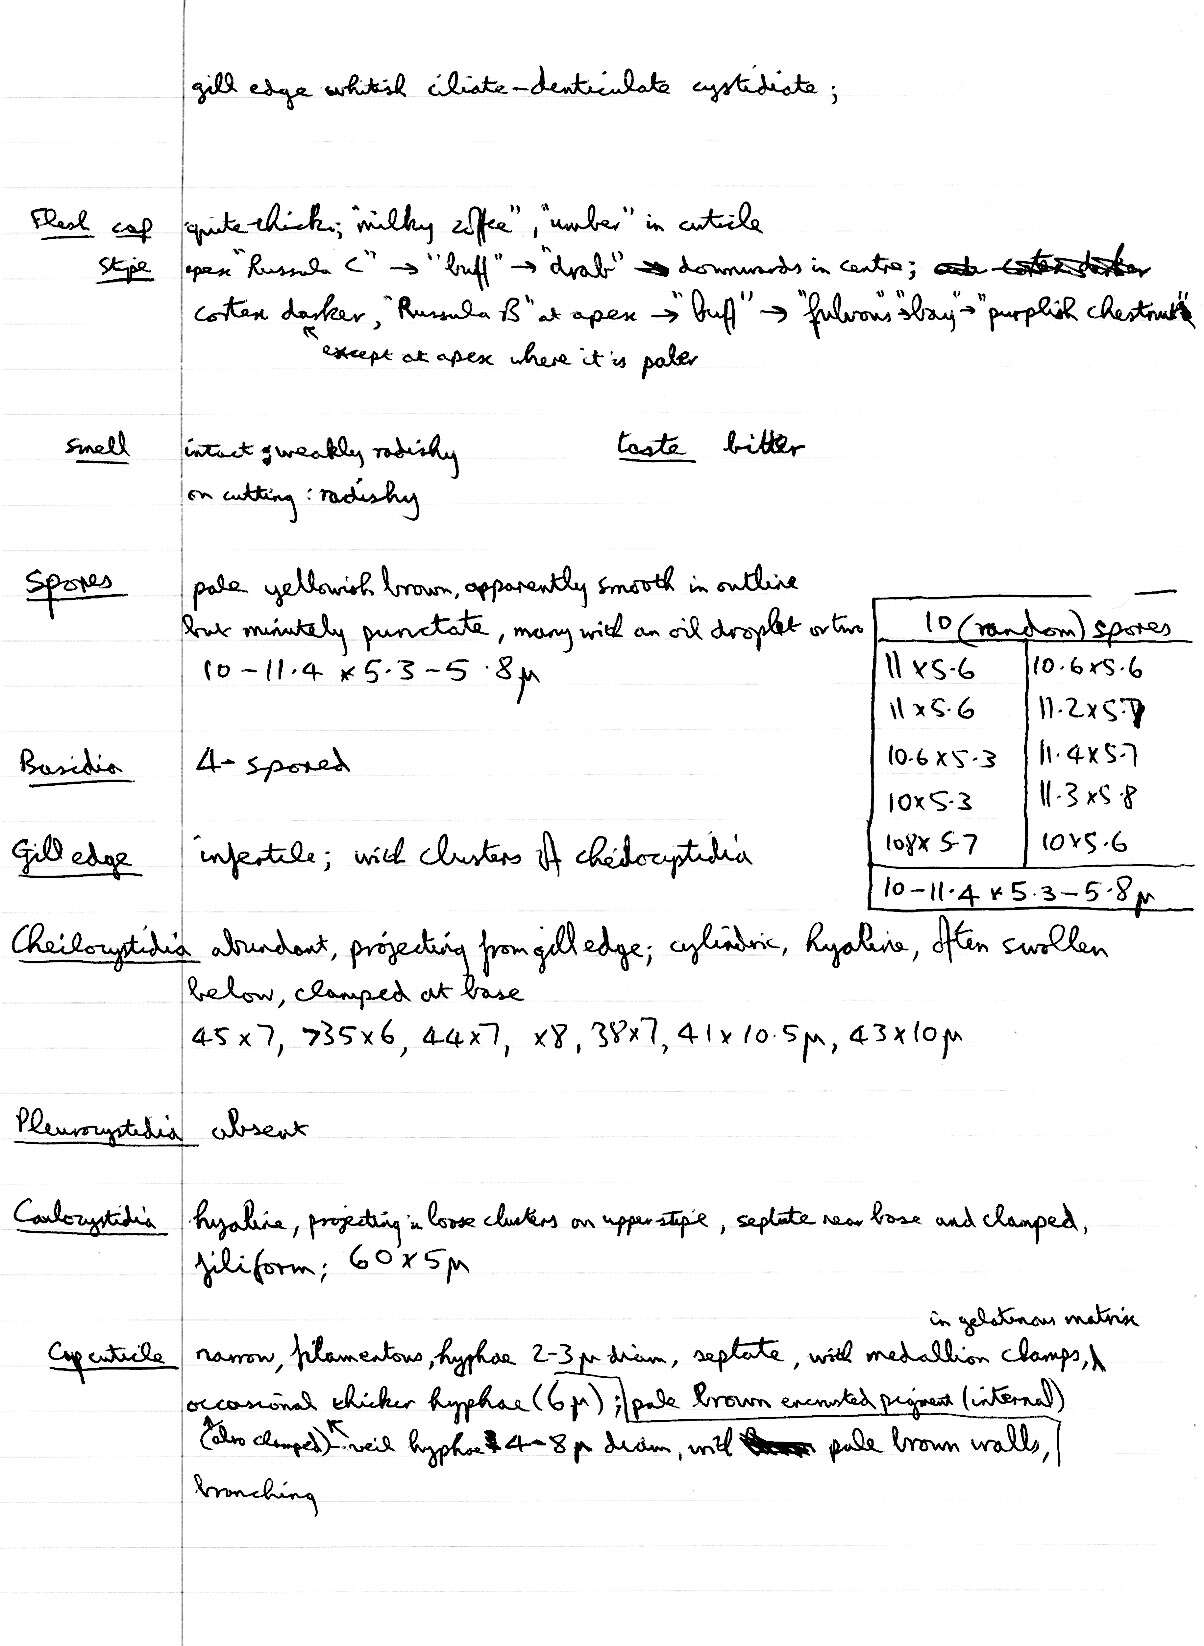 gill edge whitish ciliate-denticulate cystidiate;
Flesh cap quite thick; "milky coffee", "umber" in cuticle
Stipe apex "Russula C" → "buff" → "drab" downwards in centre;
cortex darker, "Russula B" at apex → "buff" → "fulvous" → bay" → "purplish chestnut"
except at apex where it is paler
Smell intact: weakly radishy taste bitter
on cutting: radishy
Spores pale yellowish brown, apparently smooth in outline
but minutely punctate, many with an oil droplet or two
10-11.4 x 5.3-5.8μ
10 (random) spores
11 x 5.6 10.6 x 5.6
11 x 5.6 11.2 x 5.7
10.6 x 5.3 11.4 x 5.7
10 x 5.3 11.3 x 5.8
10.8 x 5.7 10 x 5.6
10-11.4 x 5.3-5.8μ
Basidia 4-spored
Gill edge infertile; with clusters of cheilocystidia
Cheilocystidia abundant, projecting from gill edge; cylindric, hyaline, often swollen
below, clamped at base
45 x 7, >35 x 6, 44 x 7, x 8, 38 x 7, 41 x 10.5μ, 43 x 10μ
Pleurocystidia absent
Caulocystidia hyaline, projecting in loose clusters on upper stipe, septate near base and clamped,
filiform; 60 x 5μ
in gelatinous matrix
Cap cuticle narrow, filamentous, hyphae 2-3μ diam, septate, with medallion clamps,
occasional thicker hyphae (6μ); pale brown encrusted pigment (internal)
(also clamped) veil hyphae 4-8μ diam, with pale brown walls,
branching